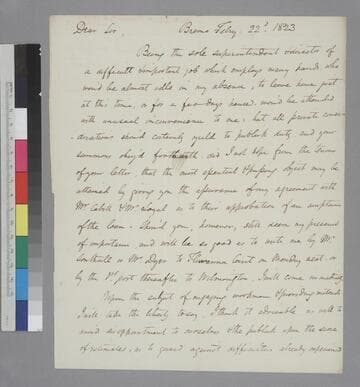 Dear Sir, Bremo Feby. 22d. 1823
Being the sole superintendent & director of
a difficult & important job which employs many hands who
would be almost idle in my absence, to leave home just
at this time, or for a few days hence, would be attended
with unusual inconvenience to me: but all private consi-
derations should certainly yield to publick duty, and your
summons obey'd forthwith, did I not hope from the tenor
of your letter, that the most essential & pressing object may be
attained by giving you the assurance of my agreement with
Mr. Cabell & Mr. Loyal as to their approbation of an acceptance
of the loan. Should you, however, still deem my presence
of importance and will be so good as to write me by Mr.
Southall or Mr. Dyer to Fluvanna Court on Monday next or
by the 1st. post thereafter to Wilmington, I will come immediately
Upon the subject of engaging workmen & providing materials
I will take the liberty to say, I think it adviseable as well to
avoid disappointment to ourselves & the publick upon the score
of estimates, as to guard against difficulties already experienced